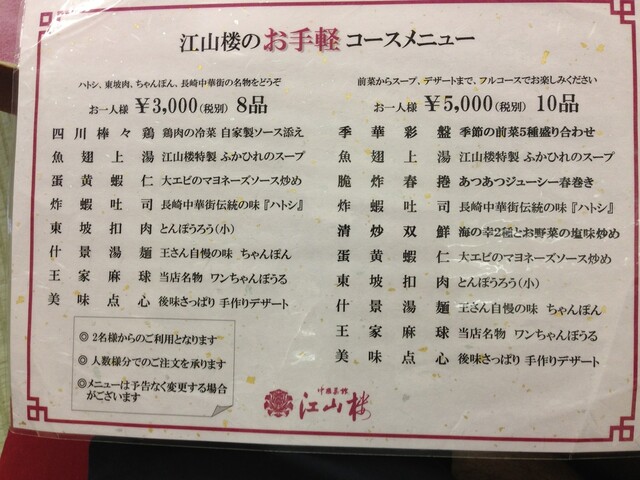 江山楼のお手軽コースメニュー
ハトシ、東坡肉、ちゃんぽん、長崎中華街の名物をどうぞ
お一人様 ¥3,000(税別) 8品
四川棒々鶏 鶏肉の冷菜 自家製ソース添え
魚翅上湯 江山楼特製 ふかひれのスープ
蛋黄蝦仁 大エビのマヨネーズソース炒め
炸蝦吐司 長崎中華街伝統の味『ハトシ』
東坡扣肉 とんぽうろう(小)
什景湯麺 王さん自慢の味 ちゃんぽん
王家麻球 当店名物 ワンちゃんぼうる
美味点心 後味さっぱり 手作りデザート
◎2名様からのご利用となります
◎人数様分でのご注文を承ります
◎メニューは予告なく変更する場合
がございます
前菜からスープ、デザートまで、フルコースでお楽しみください
お一人様 ¥5,000(税別) 10品
季華彩盤 季節の前菜5種盛り合わせ
魚翅上湯 江山楼特製 ふかひれのスープ
脆炸春捲 あつあつジューシー春巻き
炸蝦吐司 長崎中華街伝統の味『ハトシ』
清炒双鮮 海の幸2種とお野菜の塩味炒め
蛋黄蝦仁 大エビのマヨネーズソース炒め
東坡扣肉 とんぽうろう(小)
什景湯麺 王さん自慢の味 ちゃんぽん
王家麻球 当店名物 ワンちゃんぼうる
美味点心 後味さっぱり 手作りデザート
中国菜館
江山楼